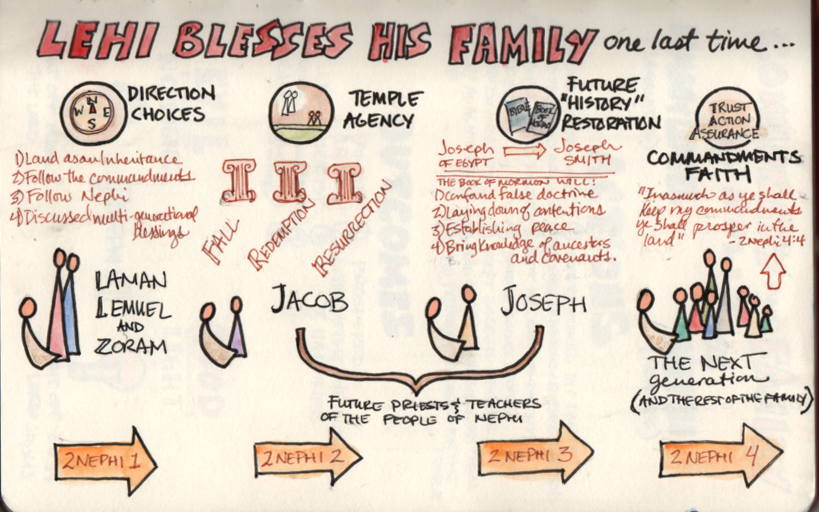 LEHI BLESSES HIS FAMILY one last time...
N
W E
S
DIRECTION
CHOICES
1) Land as an Inheritance
2) Follow the commandments
3) Follow Nephi
4) Discussed multi-generational
blessings
LAMAN
LEMUEL
AND
ZORAM
2 NEPHI 1
TEMPLE
AGENCY
FALL
REDEMPTION
RESURRECTION
JACOB
2 NEPHI 2
BIBLE
BOOK
OF
MORMON
FUTURE
"HISTORY"
RESTORATION
Joseph
OF EGYPT
Joseph
SMITH
THE BOOK OF MORMON WILL:
1) Confound false doctrine
2) Laying down of contentions
3) Establishing peace
4) Bring knowledge of ancestors
and covenants.
JOSEPH
FUTURE PRIESTS & TEACHERS
OF THE PEOPLE OF NEPHI
2 NEPHI 3
TRUST
ACTION
ASSURANCE
COMMANDMENTS
FAITH
"Inasmuch as ye shall
keep my commandments
ye shall prosper in the
land"
- 2 Nephi 4:4
THE NEXT
generation
(AND THE REST OF THE FAMILY)
2 NEPHI 4